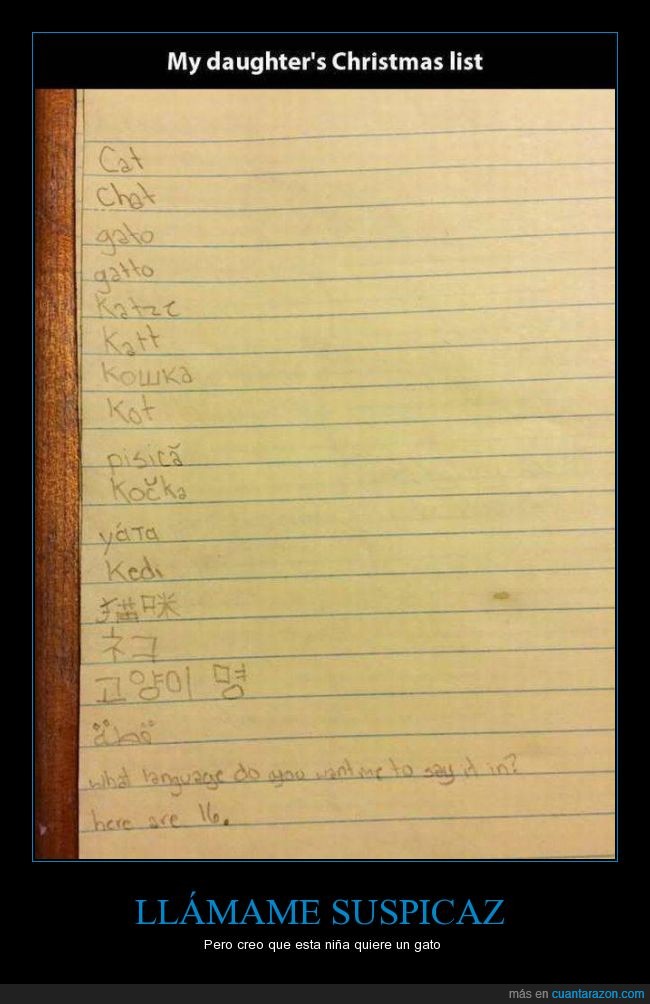 My daughter's Christmas list
Cat
Chat
gato
gatto
Katze
Katt
кошка
Kot
pisică
Kočka
γάτα
Kedi
猫咪
ネコ
고양이 명
what language do you want me to say it in?
here are 16.
LLÁMAME SUSPICAZ
Pero creo que esta niña quiere un gato
más en cuantarazon.com